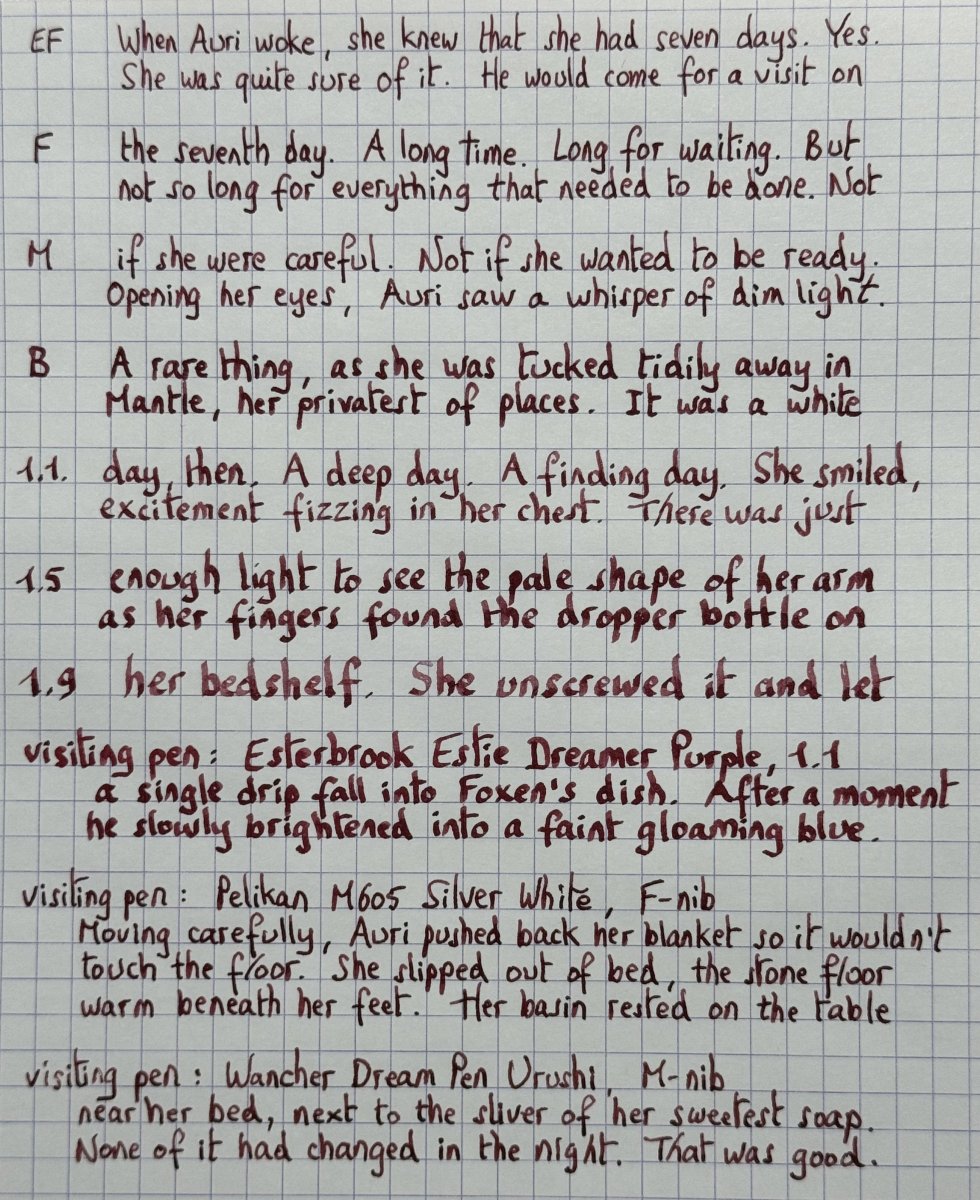 EF When Auri woke, she knew that she had seven days. Yes.
She was quite sure of it. He would come for a visit on
F the seventh day. A long time. Long for waiting. But
not so long for everything that needed to be done. Not
M if she were careful. Not if she wanted to be ready.
Opening her eyes, Auri saw a whisper of dim light.
B A rare thing, as she was tucked tidily away in
Mantle, her privatest of places. It was a white
1.1. day, then. A deep day. A finding day. She smiled,
excitement fizzing in her chest. There was just
1.5 enough light to see the pale shape of her arm
as her fingers found the dropper bottle on
1.9 her bedshelf. She unscrewed it and let
visiting pen: Esterbrook Estie Dreamer Purple, 1.1
a single drip fall into Foxen's dish. After a moment
he slowly brightened into a faint gloaming blue.
visiting pen: Pelikan M605 Silver White, F-nib
Moving carefully, Auri pushed back her blanket so it wouldn't
touch the floor. She slipped out of bed, the stone floor
warm beneath her feet. Her basin rested on the table
visiting pen: Wancher Dream Pen Urushi, M-nib
near her bed, next to the sliver of her sweetest soap.
None of it had changed in the night. That was good.